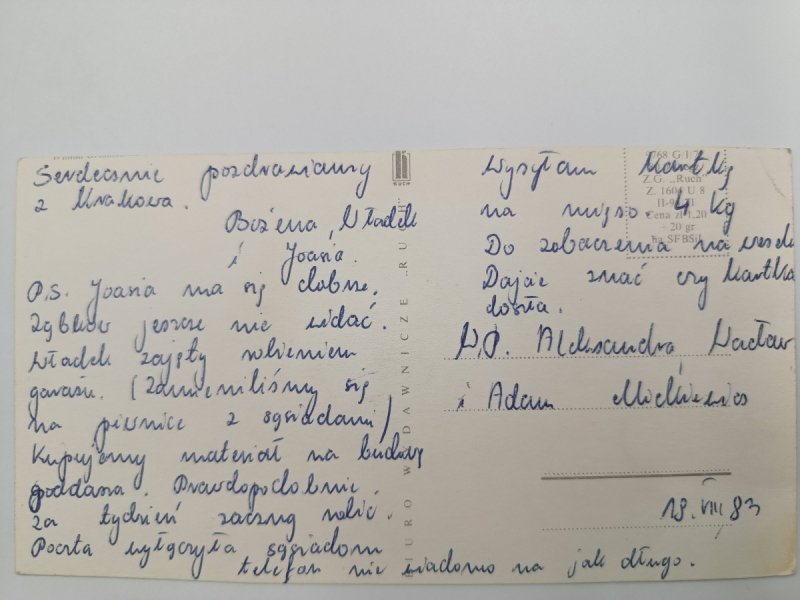 Serdecznie pozdrawiamy
z Krakowa.
Bożena, Władek
i Joasia.
P.S. Joasia ma się dobrze,
Ząbków jeszcze nie widać.
Władek zajęty robieniem
garażu. (Zamieniliśmy się
na piwnice z sąsiadami)
Kupujemy materiał na budowę
poddasza. Prawdopodobnie
za tydzień zaczną robić.
Poczta wyłączyła sąsiadom
telefon nie wiadomo na jak długo.
RUCH
BIURO WYDAWNICZE „RUCH"
Wysyłam kartkę
na mięso. 4 kg
Z.G. „Ruch"
Cena zł 1,20
+ 20 gr
na SFBSiI
Do zobaczenia na
Dajcie znać czy kartka
doszła.
W.P. Aleksandra, Wacław
i Adam
19.VIII 83